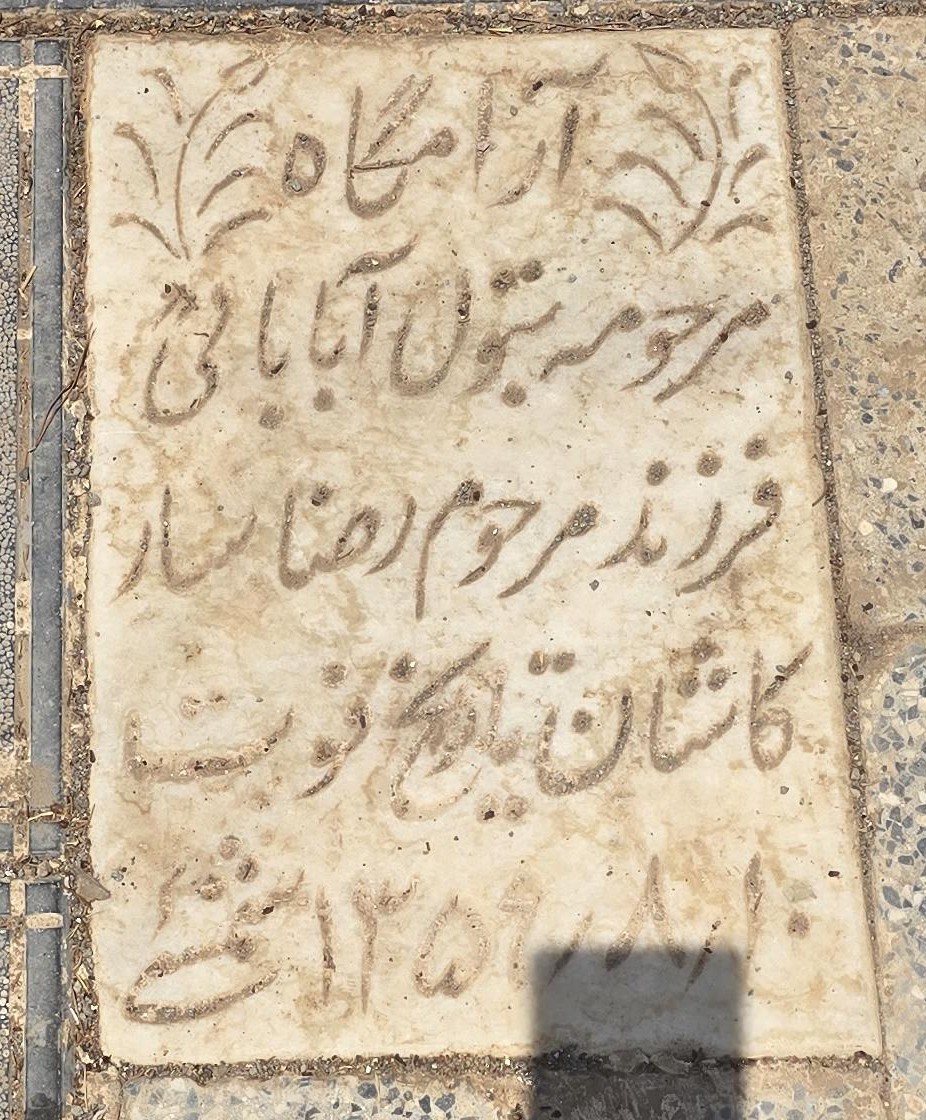 آرامگاه
مرحومه بتول آبابائی
فرزند مرحوم رضا سار
کاشان تاریخ فوت
۱۰/۸/۱۳۵۶